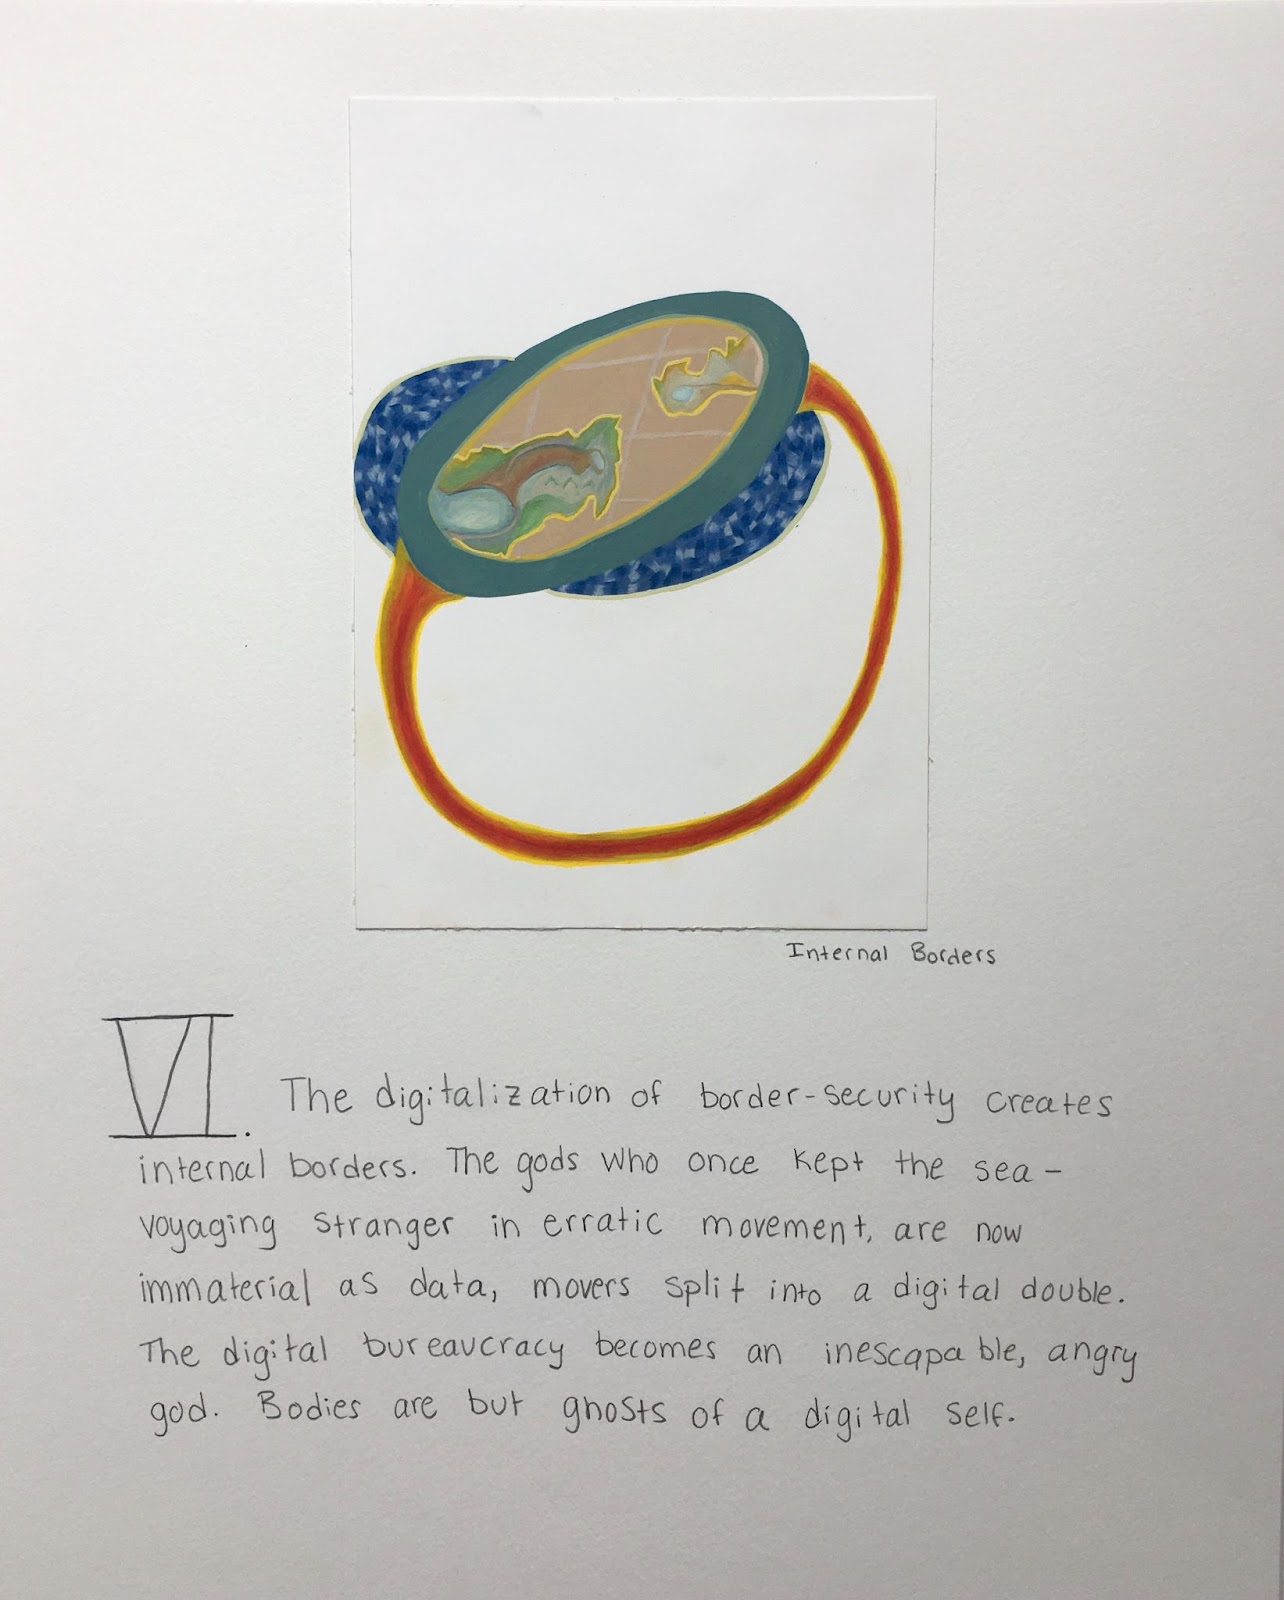 Internal Borders
VI. The digitalization of border-security creates
internal borders. The gods who once kept the sea-
voyaging stranger in erratic movement, are now
immaterial as data, movers split into a digital double.
The digital bureaucracy becomes an inescapable, angry
god. Bodies are but ghosts of a digital self.